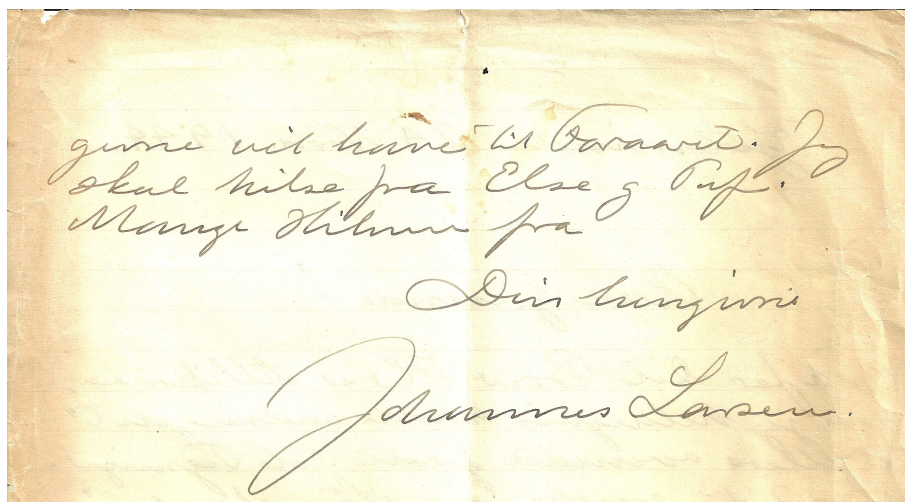 gerne vil have til Foraaret. Jeg
skal hilse fra Else og Puf.
Mange Hilsner fra
Din hengivne
Johannes Larsen.